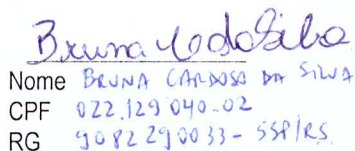 Bruna C da Silva
Nome BRUNA CARDOSO DA SILVA
CPF 022.129 040-02
RG 9082290033 - SSP/RS